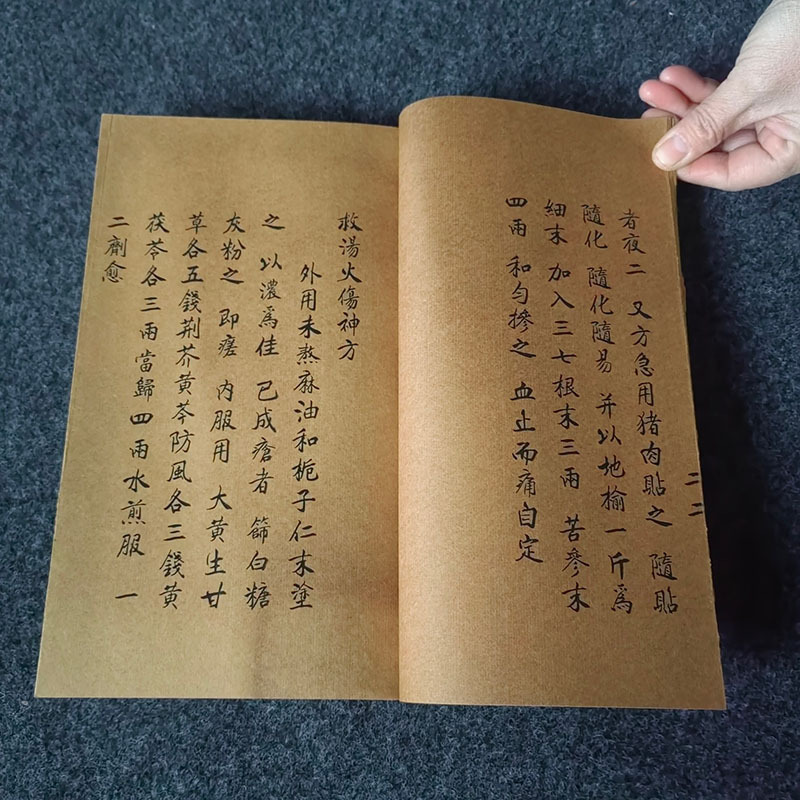 者夜二 又方急用猪肉貼之 隨貼
隨化 隨化隨易 并以地榆一斤爲
細末 加入三七根末三兩 苦參末
四兩 和勻摻之 血止而痛自定
二二
救湯火傷神方
外用未熬麻油和梔子仁末塗
之 以濃爲佳 已成瘡者 篩白糖
灰粉之 即瘥 內服用 大黄生甘
草各五錢荆芥黄芩防風各三錢黄
茯苓各三兩當歸四兩水煎服 一
二劑愈